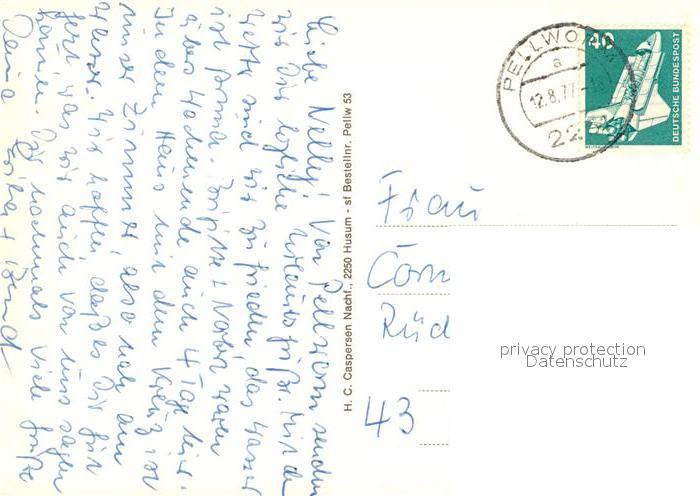 Liebe Nelly! Von Pellworm senden
wir Dir herzliche Urlaubsgrüße. Mit dem
Wetter sind wir zufrieden, das Wasser
ist prima. Brigitte + Norbert waren
übers Wochenende auch 4 Tage hier.
In dem Haus mit dem Kreuz ist
unser Zimmer, also nah am
Wasser. Wir hoffen, daß es Dir gut
geht, was wir auch von uns sagen
können. Dir nochmals viele Grüße
Deine
Erika + Bernd
H. C. Caspersen Nachf., 2250 Husum - sf Bestellnr. Pellw 53
PELLWORM
a
12.8.77
22
40
DEUTSCHE BUNDESPOST
Frau
Corn
Rüd
43
privacy protection
Datenschutz